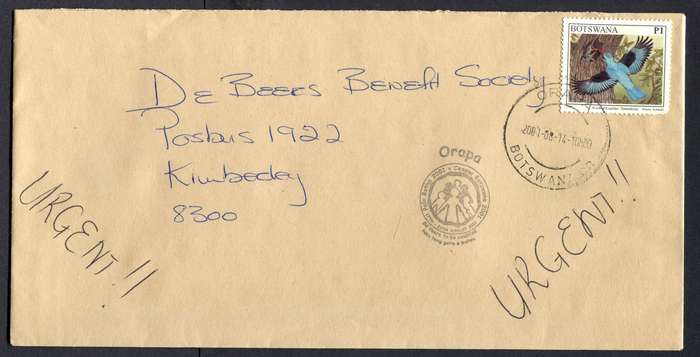 BOTSWANA P1
ORAPA
2001-08-14-10:20
BOTSWANA
De Beers Benefit Society
Posbus 1922
Kimberley
8300
Orapa
URGENT!!
URGENT!!